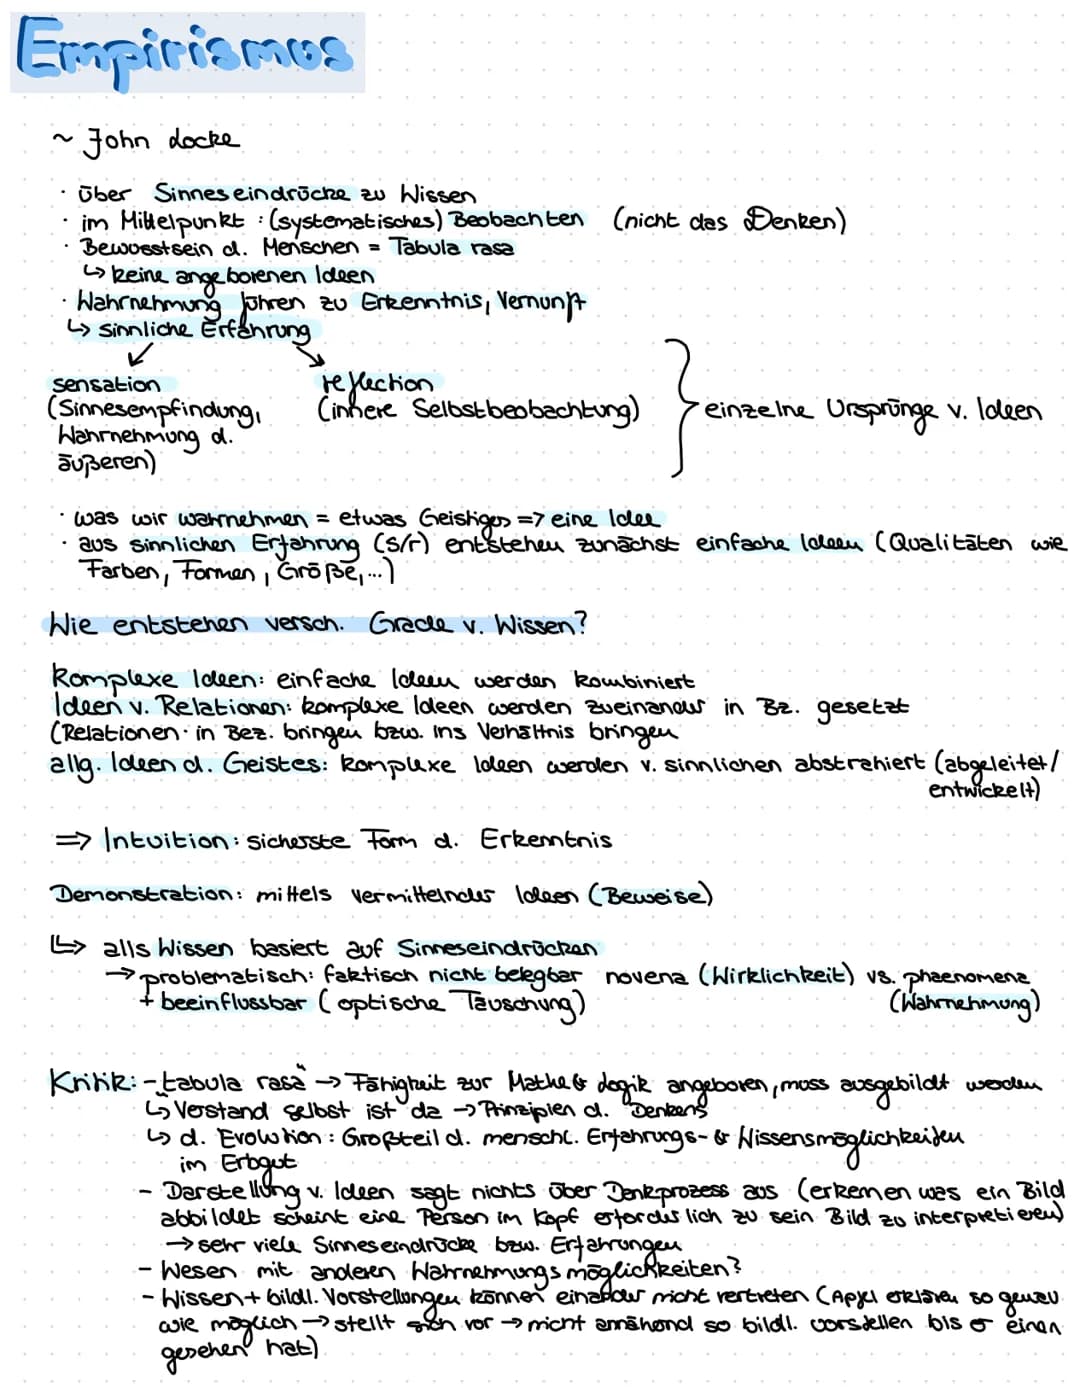 Empirismus
~ John Locke
· über Sinneseindrücke zu Wissen
· im Mittelpunkt: (systematisches) Beobachten (nicht das Denken)
· Bewusstsein d. Menschen = Tabula rasa
↳ keine angeborenen Ideen
· Wahrnehmung führen zu Erkenntnis, Vernunft
↳ sinnliche Erfahrung
sensation
(Sinnesempfindung,
Wahrnehmung d.
äußeren)
reflection
(innere Selbstbeobachtung)
einzelne Ursprünge v. Ideen
· was wir wahrnehmen = etwas Geistiges => eine Idee
· aus sinnlichen Erfahrung (s/r) entstehen zunächst einfache Ideen (Qualitäten wie
Farben, Formen, Größe,...)
Wie entstehen versch. Grade v. Wissen?
Komplexe Ideen: einfache Ideen werden kombiniert
Ideen v. Relationen: komplexe Ideen werden zueinander in Bz. gesetzt
(Relationen: in Bez. bringen bzw. ins Verhältnis bringen
allg. Ideen d. Geistes: komplexe Ideen werden v. sinnlichen abstrahiert (abgeleitet/
entwickelt)
=> Intuition: sicherste Form d. Erkenntnis
Demonstration: mittels vermittelnder Ideen (Beweise)
↳ alls Wissen basiert auf Sinneseindrücken
→ problematisch: faktisch nicht belegbar novena (Wirklichkeit) vs. phaenomena
+ beeinflussbar (optische Täuschung) (Wahrnehmung)
Kritik: - tabula rasa → Fähigkeit zur Mathe & Logik angeboren, muss ausgebildt werden
↳ Verstand selbst ist da → Prinzipien d. Denkens
↳ d. Evolution: Großteil d. menschl. Erfahrungs- & Wissensmöglichkeiten
im Erbgut
- Darstellung v. Ideen sagt nichts über Denkprozess aus (erkennen was ein Bild
abbildet scheint eine Person im Kopf erforderlich zu sein Bild zu interpretieren)
→ sehr viele Sinneseindrücke bzw. Erfahrungen
- Wesen mit anderen Wahrnehmungsmöglichkeiten?
- Wissen + bildl. Vorstellungen können einander nicht vertreten (Apfel erklären so genau
wie möglich → stellt sich vor → nicht annähend so bildl. vorstellen bis er einen
gesehen hat)